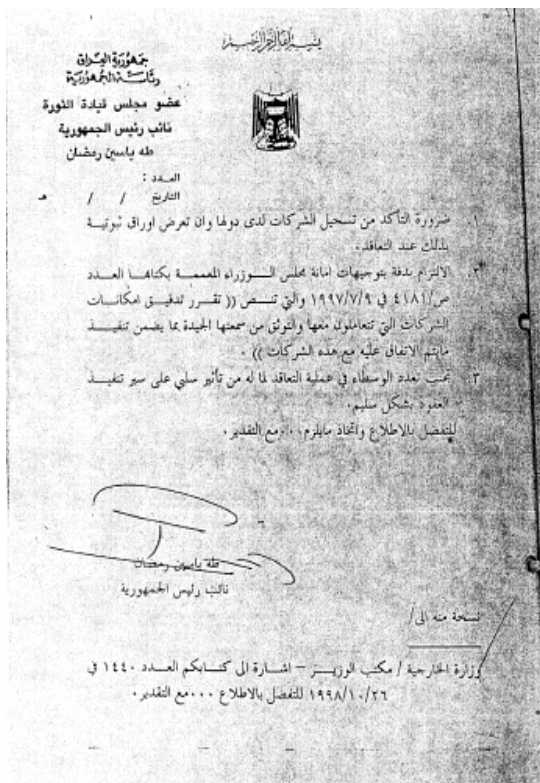 بسم الله الرحمن الرحيم
جمهورية العراق
رئاسة الجمهورية
عضو مجلس قيادة الثورة
نائب رئيس الجمهورية
طه ياسين رمضان
العدد :
التاريخ / / هـ
١. ضرورة التأكد من تسجيل الشركات لدى دولها وان تعرض اوراق ثبوتية
بذلك عند التعاقد.
٢. الالتزام بدقة بتوجيهات امانة مجلس الـوزراء المعممة بكتابها العدد
ص/٤١٨١ في ١٩٩٧/٧/٩ والتي تنـص (( تقرر تدقيق امكانـات
الشركات التي تتعاملون معها والتوثق من سمعتها الجيدة بما يضمن تنفيـذ
مايتم الاتفاق عليه مع هذه الشركات )) .
٣. تجنب تعدد الوسطاء في عملية التعاقد لما له من تأثير سلبي على سير تنفيـذ
العقود بشكل سليم.
للتفضل بالاطلاع واتخاذ مايلزم . . .مع التقدير .
طه ياسين رمضان
نائب رئيس الجمهورية
نسخة منه الى/
وزارة الخارجية / مكتب الوزيـر – اشـارة الى كتـابكم العدد ١٤٤٠ في
١٩٩٨/١٠/٢٦ للتفضل بالاطلاع . . . .مع التقدير .